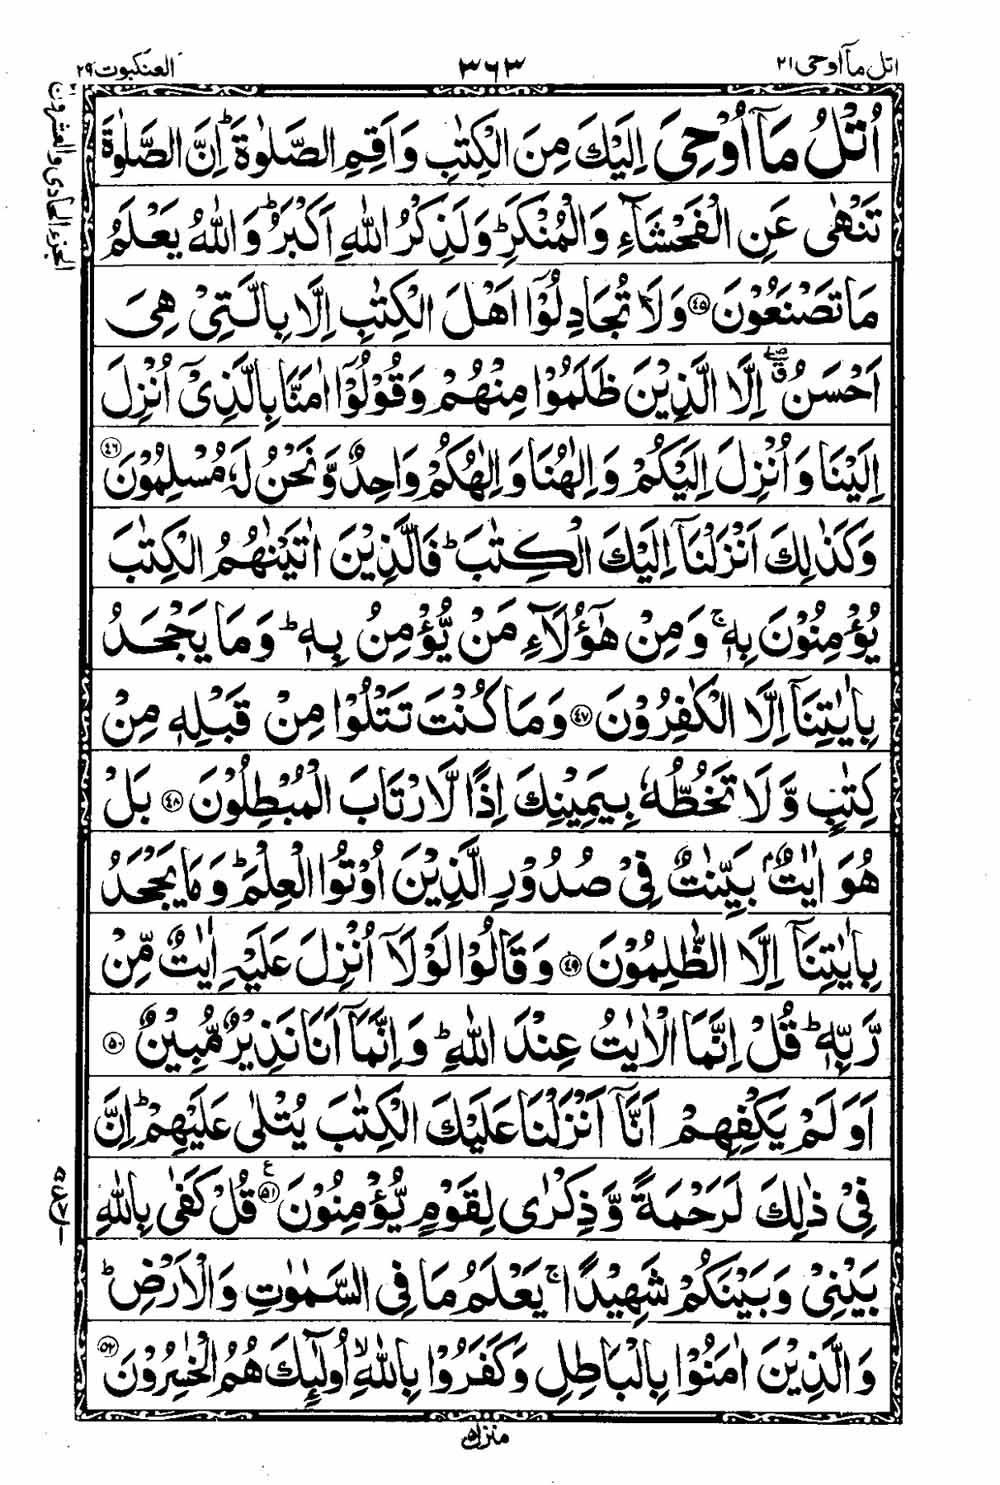 اتل مآ اوحی ۲۱
۳۶۳
العنکبوت ۲۹
الجزء الحادی والعشرون
اُتْلُ مَاۤ اُوْحِیَ اِلَیْكَ مِنَ الْكِتٰبِ وَاَقِمِ الصَّلٰوةَ ؕ اِنَّ الصَّلٰوةَ
تَنْهٰی عَنِ الْفَحْشَآءِ وَالْمُنْكَرِ ؕ وَلَذِكْرُ اللّٰهِ اَكْبَرُ ؕ وَاللّٰهُ یَعْلَمُ
مَا تَصْنَعُوْنَ ﴿۴۵﴾ وَلَا تُجَادِلُوْۤا اَهْلَ الْكِتٰبِ اِلَّا بِالَّتِیْ هِیَ
اَحْسَنُ ۖق اِلَّا الَّذِیْنَ ظَلَمُوْا مِنْهُمْ وَقُوْلُوْۤا اٰمَنَّا بِالَّذِیْۤ اُنْزِلَ
اِلَیْنَا وَاُنْزِلَ اِلَیْكُمْ وَاِلٰهُنَا وَاِلٰهُكُمْ وَاحِدٌ وَّنَحْنُ لَهٗ مُسْلِمُوْنَ ﴿۴۶﴾
وَكَذٰلِكَ اَنْزَلْنَاۤ اِلَیْكَ الْكِتٰبَ ؕ فَالَّذِیْنَ اٰتَیْنٰهُمُ الْكِتٰبَ
یُؤْمِنُوْنَ بِهٖ ۚ وَمِنْ هٰۤؤُلَآءِ مَنْ یُّؤْمِنُ بِهٖ ؕ وَمَا یَجْحَدُ
بِاٰیٰتِنَاۤ اِلَّا الْكٰفِرُوْنَ ﴿۴۷﴾ وَمَا كُنْتَ تَتْلُوْا مِنْ قَبْلِهٖ مِنْ
كِتٰبٍ وَّلَا تَخُطُّهٗ بِیَمِیْنِكَ اِذًا لَّارْتَابَ الْمُبْطِلُوْنَ ﴿۴۸﴾ بَلْ
هُوَ اٰیٰتٌۢ بَیِّنٰتٌ فِیْ صُدُوْرِ الَّذِیْنَ اُوْتُوا الْعِلْمَ ؕ وَمَا یَجْحَدُ
بِاٰیٰتِنَاۤ اِلَّا الظّٰلِمُوْنَ ﴿۴۹﴾ وَقَالُوْا لَوْلَاۤ اُنْزِلَ عَلَیْهِ اٰیٰتٌ مِّنْ
رَّبِّهٖ ؕ قُلْ اِنَّمَا الْاٰیٰتُ عِنْدَ اللّٰهِ ؕ وَاِنَّمَاۤ اَنَا نَذِیْرٌ مُّبِیْنٌ ﴿۵۰﴾
اَوَلَمْ یَكْفِهِمْ اَنَّاۤ اَنْزَلْنَا عَلَیْكَ الْكِتٰبَ یُتْلٰی عَلَیْهِمْ ؕ اِنَّ
فِیْ ذٰلِكَ لَرَحْمَةً وَّذِكْرٰی لِقَوْمٍ یُّؤْمِنُوْنَ ﴿۵۱﴾ ع قُلْ كَفٰی بِاللّٰهِ
بَیْنِیْ وَبَیْنَكُمْ شَهِیْدًا ۚ یَعْلَمُ مَا فِی السَّمٰوٰتِ وَالْاَرْضِ ؕ
وَالَّذِیْنَ اٰمَنُوْا بِالْبَاطِلِ وَكَفَرُوْا بِاللّٰهِ ۙ اُولٰٓئِكَ هُمُ الْخٰسِرُوْنَ ﴿۵۲﴾
منزل ۵